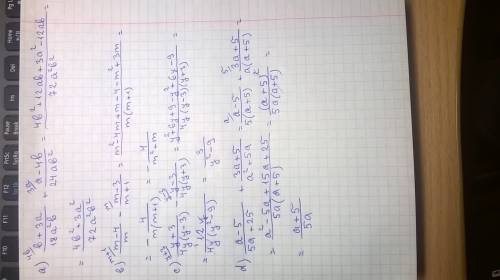 a) \frac{b+3a}{18a^2b} + \frac{a-4b}{24ab^2} = \frac{4b^2+12ab+3a^2-12ab}{72a^2b^2} =
= \frac{4b^2+3a^2}{72a^2b^2}
b) \frac{m-4}{m} - \frac{m-3}{m+1} = \frac{m^2-4m+m-4-m^2+3m}{m(m+1)} =
= -\frac{4}{m(m+1)} = -\frac{4}{m^2+m}
c) \frac{y+3}{4y(y-3)} - \frac{y-3}{4y(y+3)} = \frac{y^2+6y+9-y^2+6y-9}{4y(y-3)(y+3)} =
= \frac{12y}{4y(y^2-9)} = \frac{3}{y^2-9}
d) \frac{a-5}{5a+25} + \frac{3a+5}{a^2+5a} = \frac{a-5}{5(a+5)} + \frac{3a+5}{a(a+5)} =
= \frac{a^2-5a+15a+25}{5a(a+5)} = \frac{(a+5)^2}{5a(a+5)} =
= \frac{a+5}{5a}
Home
F12
Del
Ins
F11
Pause
PrtSc
F10